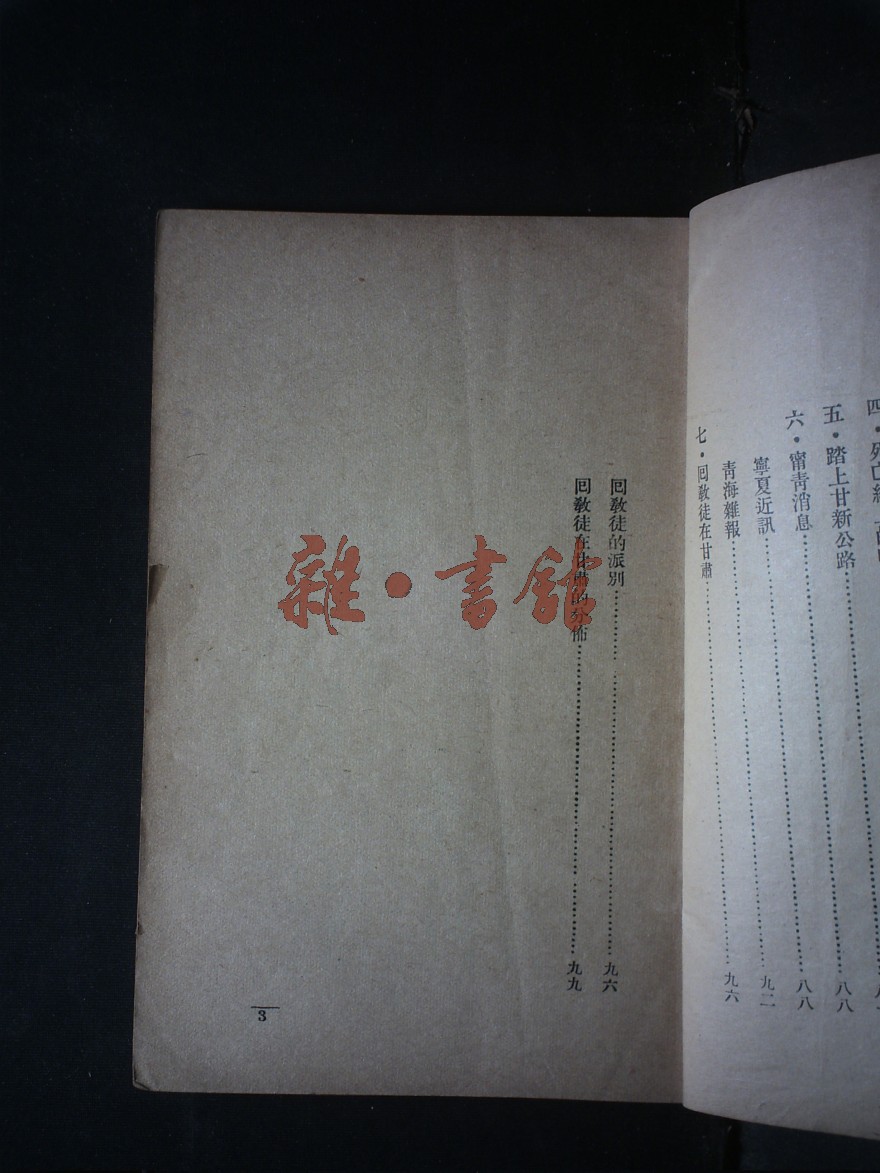 四・死亡線
五・踏上甘新公路……八八
六・甯青消息……八八
寧夏近訊……九二
青海雜報……九六
七・囘敎徒在甘肅
囘敎徒的派別……九六
囘敎徒在甘肅的分佈……九九
3
雜・書館